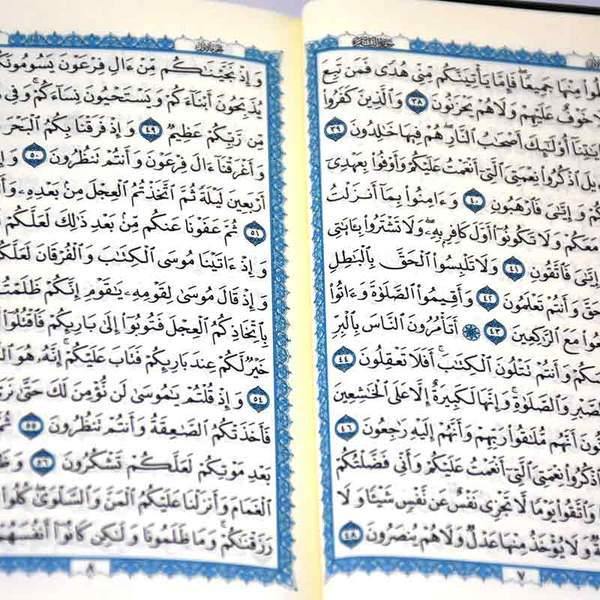 مِنْهَا جَمِيعًا ۖ فَإِمَّا يَأْتِيَنَّكُم مِّنِّى هُدًى فَمَن تَبِعَ
خَوْفٌ عَلَيْهِمْ وَلَا هُمْ يَحْزَنُونَ ٣٨ وَٱلَّذِينَ كَفَرُوا۟
أُو۟لَٰٓئِكَ أَصْحَٰبُ ٱلنَّارِ ۖ هُمْ فِيهَا خَٰلِدُونَ ٣٩
ٱذْكُرُوا۟ نِعْمَتِىَ ٱلَّتِىٓ أَنْعَمْتُ عَلَيْكُمْ وَأَوْفُوا۟ بِعَهْدِىٓ
وَإِيَّٰىَ فَٱرْهَبُونِ ٤٠ وَءَامِنُوا۟ بِمَآ أَنزَلْتُ
مَعَكُمْ وَلَا تَكُونُوٓا۟ أَوَّلَ كَافِرٍۭ بِهِۦ ۖ وَلَا تَشْتَرُوا۟ بِـَٔايَٰتِى
وَإِيَّٰىَ فَٱتَّقُونِ ٤١ وَلَا تَلْبِسُوا۟ ٱلْحَقَّ بِٱلْبَٰطِلِ
وَأَنتُمْ تَعْلَمُونَ ٤٢ وَأَقِيمُوا۟ ٱلصَّلَوٰةَ وَءَاتُوا۟
مَعَ ٱلرَّٰكِعِينَ ٤٣ ۞ أَتَأْمُرُونَ ٱلنَّاسَ بِٱلْبِرِّ
وَأَنتُمْ تَتْلُونَ ٱلْكِتَٰبَ ۚ أَفَلَا تَعْقِلُونَ ٤٤
وَٱلصَّلَوٰةِ ۚ وَإِنَّهَا لَكَبِيرَةٌ إِلَّا عَلَى ٱلْخَٰشِعِينَ
أَنَّهُم مُّلَٰقُوا۟ رَبِّهِمْ وَأَنَّهُمْ إِلَيْهِ رَٰجِعُونَ ٤٦
ٱذْكُرُوا۟ نِعْمَتِىَ ٱلَّتِىٓ أَنْعَمْتُ عَلَيْكُمْ وَأَنِّى فَضَّلْتُكُمْ
وَٱتَّقُوا۟ يَوْمًا لَّا تَجْزِى نَفْسٌ عَن نَّفْسٍ شَيْـًٔا وَلَا
وَلَا يُؤْخَذُ مِنْهَا عَدْلٌ وَلَا هُمْ يُنصَرُونَ ٤٨
٧
وَإِذْ نَجَّيْنَٰكُم مِّنْ ءَالِ فِرْعَوْنَ يَسُومُونَكُمْ
يُذَبِّحُونَ أَبْنَآءَكُمْ وَيَسْتَحْيُونَ نِسَآءَكُمْ ۚ وَفِى
مِّن رَّبِّكُمْ عَظِيمٌ ٤٩ وَإِذْ فَرَقْنَا بِكُمُ ٱلْبَحْرَ
وَأَغْرَقْنَآ ءَالَ فِرْعَوْنَ وَأَنتُمْ تَنظُرُونَ ٥٠
أَرْبَعِينَ لَيْلَةً ثُمَّ ٱتَّخَذْتُمُ ٱلْعِجْلَ مِنۢ بَعْدِهِۦ
٥١ ثُمَّ عَفَوْنَا عَنكُم مِّنۢ بَعْدِ ذَٰلِكَ لَعَلَّكُمْ
وَإِذْ ءَاتَيْنَا مُوسَى ٱلْكِتَٰبَ وَٱلْفُرْقَانَ
وَإِذْ قَالَ مُوسَىٰ لِقَوْمِهِۦ يَٰقَوْمِ إِنَّكُمْ ظَلَمْتُمْ
بِٱتِّخَاذِكُمُ ٱلْعِجْلَ فَتُوبُوٓا۟ إِلَىٰ بَارِئِكُمْ فَٱقْتُلُوٓا۟
خَيْرٌ لَّكُمْ عِندَ بَارِئِكُمْ فَتَابَ عَلَيْكُمْ ۚ إِنَّهُۥ هُوَ
٥٤ وَإِذْ قُلْتُمْ يَٰمُوسَىٰ لَن نُّؤْمِنَ لَكَ حَتَّىٰ
فَأَخَذَتْكُمُ ٱلصَّٰعِقَةُ وَأَنتُمْ تَنظُرُونَ ٥٥
بَعْدِ مَوْتِكُمْ لَعَلَّكُمْ تَشْكُرُونَ ٥٦
ٱلْغَمَامَ وَأَنزَلْنَا عَلَيْكُمُ ٱلْمَنَّ وَٱلسَّلْوَىٰ ۖ كُلُوا۟
رَزَقْنَٰكُمْ ۖ وَمَا ظَلَمُونَا وَلَٰكِن كَانُوٓا۟ أَنفُسَهُمْ
٨